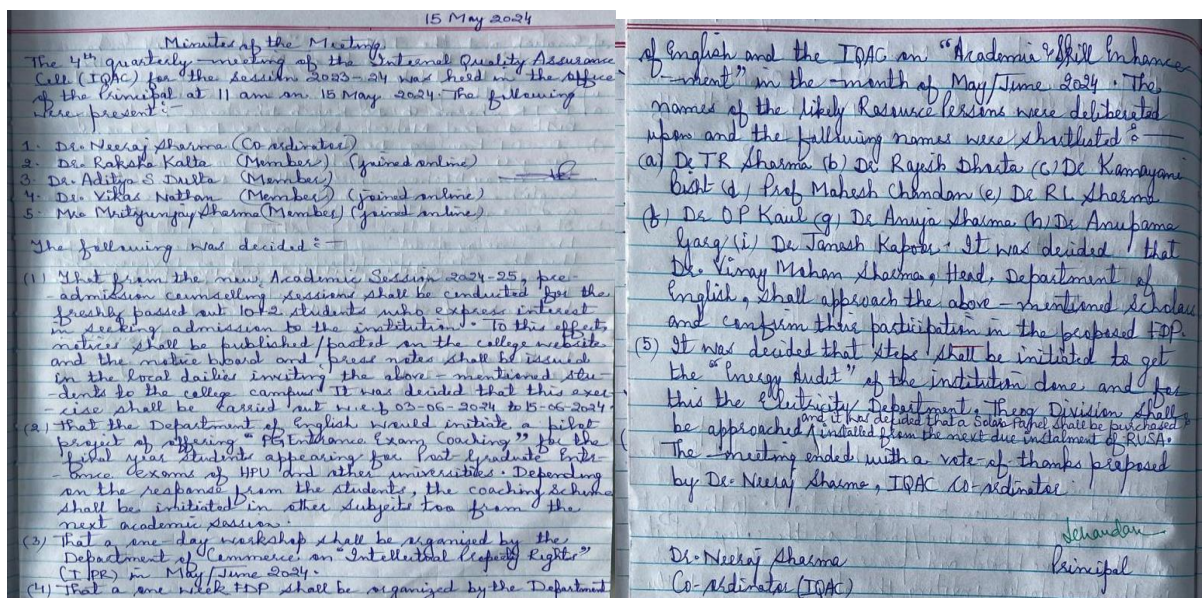 15 May 2024
Minutes of the Meeting
The 4th quarterly meeting of the Internal Quality Assurance
Cell (IQAC) for the session 2023-24 was held in the office
of the Principal at 11 am on 15 May 2024. The following
were present:-
1. Dr. Neeraj Sharma (Co ordinator)
2. Dr. Raksha Kalta (Member) (joined online)
3. Dr. Aditya S Dulta (Member)
4. Dr. Vikas Nathan (Member) (joined online)
5. Mr. Mrityunjay Sharma (Member) (joined online)
The following was decided:-
(1) That from the new Academic Session 2024-25, pre-
-admission counselling sessions shall be conducted for the
freshly passed out 10+2 students who express interest
in seeking admission to the institution. To this effect,
notices shall be published/pasted on the college website
and the notice board and press notes shall be issued
in the local dailies inviting the above-mentioned stu-
-dents to the college campus. It was decided that this exer-
-cise shall be carried out w.e.f 03-06-2024 to 15-06-2024.
(2) That the Department of English would initiate a pilot
project of offering "PG Entrance Exam Coaching" for the
final year students appearing for Post Graduate Entr-
-ance exams of HPU and other universities. Depending
on the response from the students, the coaching scheme
shall be initiated in other subjects too from the
next academic session.
(3) That a one-day workshop shall be organized by the
Department of Commerce on "Intellectual Property Rights"
(IPR) in May/June 2024.
(4) That a one week FDP shall be organized by the Department
of English and the IQAC on "Academia & Skill Enhance-
-ment" in the month of May/June 2024. The
names of the likely Resource Persons were deliberated
upon and the following names were shortlisted:-
(a) Dr TR Sharma (b) Dr Rajesh Dhorta (c) Dr Kamayani
Bisht (d) Prof Mahesh Chandam (e) Dr RL Sharma
(f) Dr. OP Kaul (g) Dr Anuja Sharma (h) Dr Anupama
Garg (i) Dr Janesh Kapoor. It was decided that
Dr. Vinay Mohan Sharma, Head, Department of
English, shall approach the above-mentioned scholars
and confirm their participation in the proposed FDP.
(5) It was decided that steps shall be initiated to get
the "Energy Audit" of the institution done and for
this the Electricity Department, Theog Division shall
and it was decided that a Solar Panel shall be purchased &
be approached / installed from the next due instalment of RUSA.
The meeting ended with a vote of thanks proposed
by Dr. Neeraj Sharma, IQAC Co-ordinator.
Dr. Neeraj Sharma
Co-ordinator (IQAC)
Principal